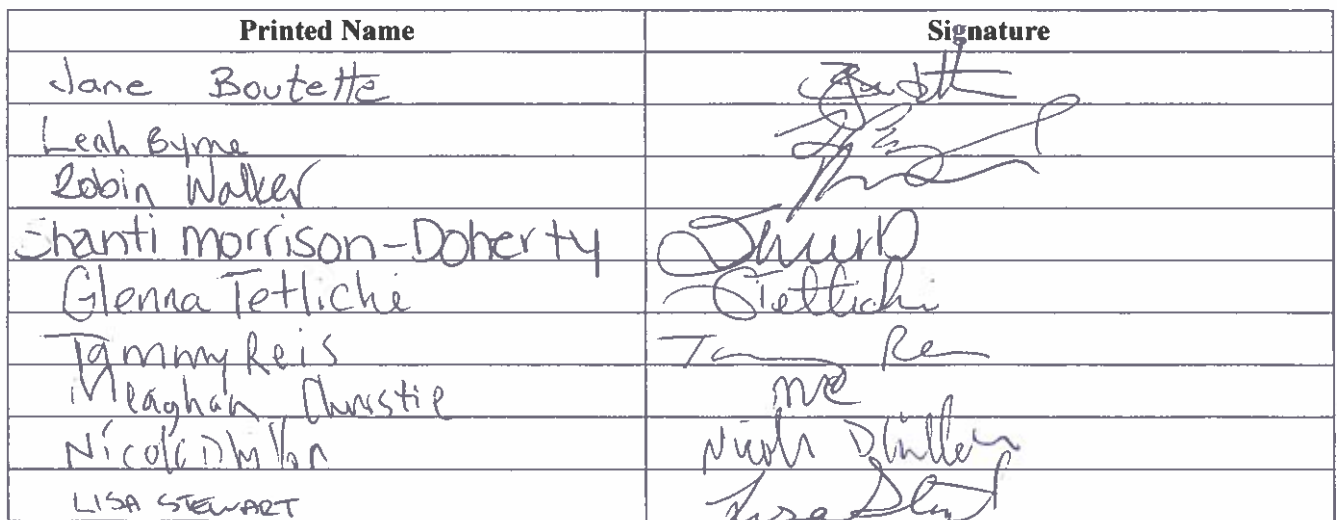 Printed Name Signature
Jane Boutette
Leah Byrne
Robin Walker
Shanti Morrison-Doherty
Glenna Tetlichi GTetlichi
Tammy Reis
Meaghan Christie MC
Nicole Dhillon Nicole Dhillon
LISA STEWART Lisa